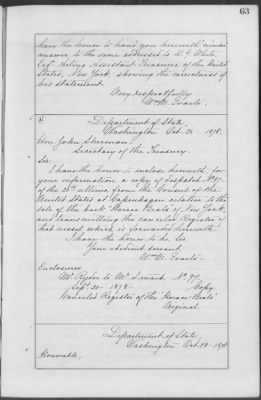 63
have the honor to hand you herewith
answer to the same addressed to
Esqr. Acting Assistant Treasurer of the United
States, New York, showing the correctness of
his statement.
Very respectfully
Wm. M. Evarts.
Department of State,
Washington Oct. 1878.
Hon. John Sherman,
Secretary of the Treasury.
Sir
I have the honor to enclose herewith for
your information a copy of despatch No. 97.
of the ultimo, from the Consul of the
United States at Copenhagen relative to the
sale of the bark "Horace Beals" of New York,
and transmitting the canceled Register of
that vessel which is forwarded herewith.
I have the honor to be, Sir
Your obedient servant
Wm. M. Evarts
Enclosures
Mr. Ryder to Mr. Seward. No. 97.
Sept. 30 - 1878 - Copy.
Canceled Register of the "Horace Beals"
Original.
Department of State,
Washington Oct. 1878.
Honorable,